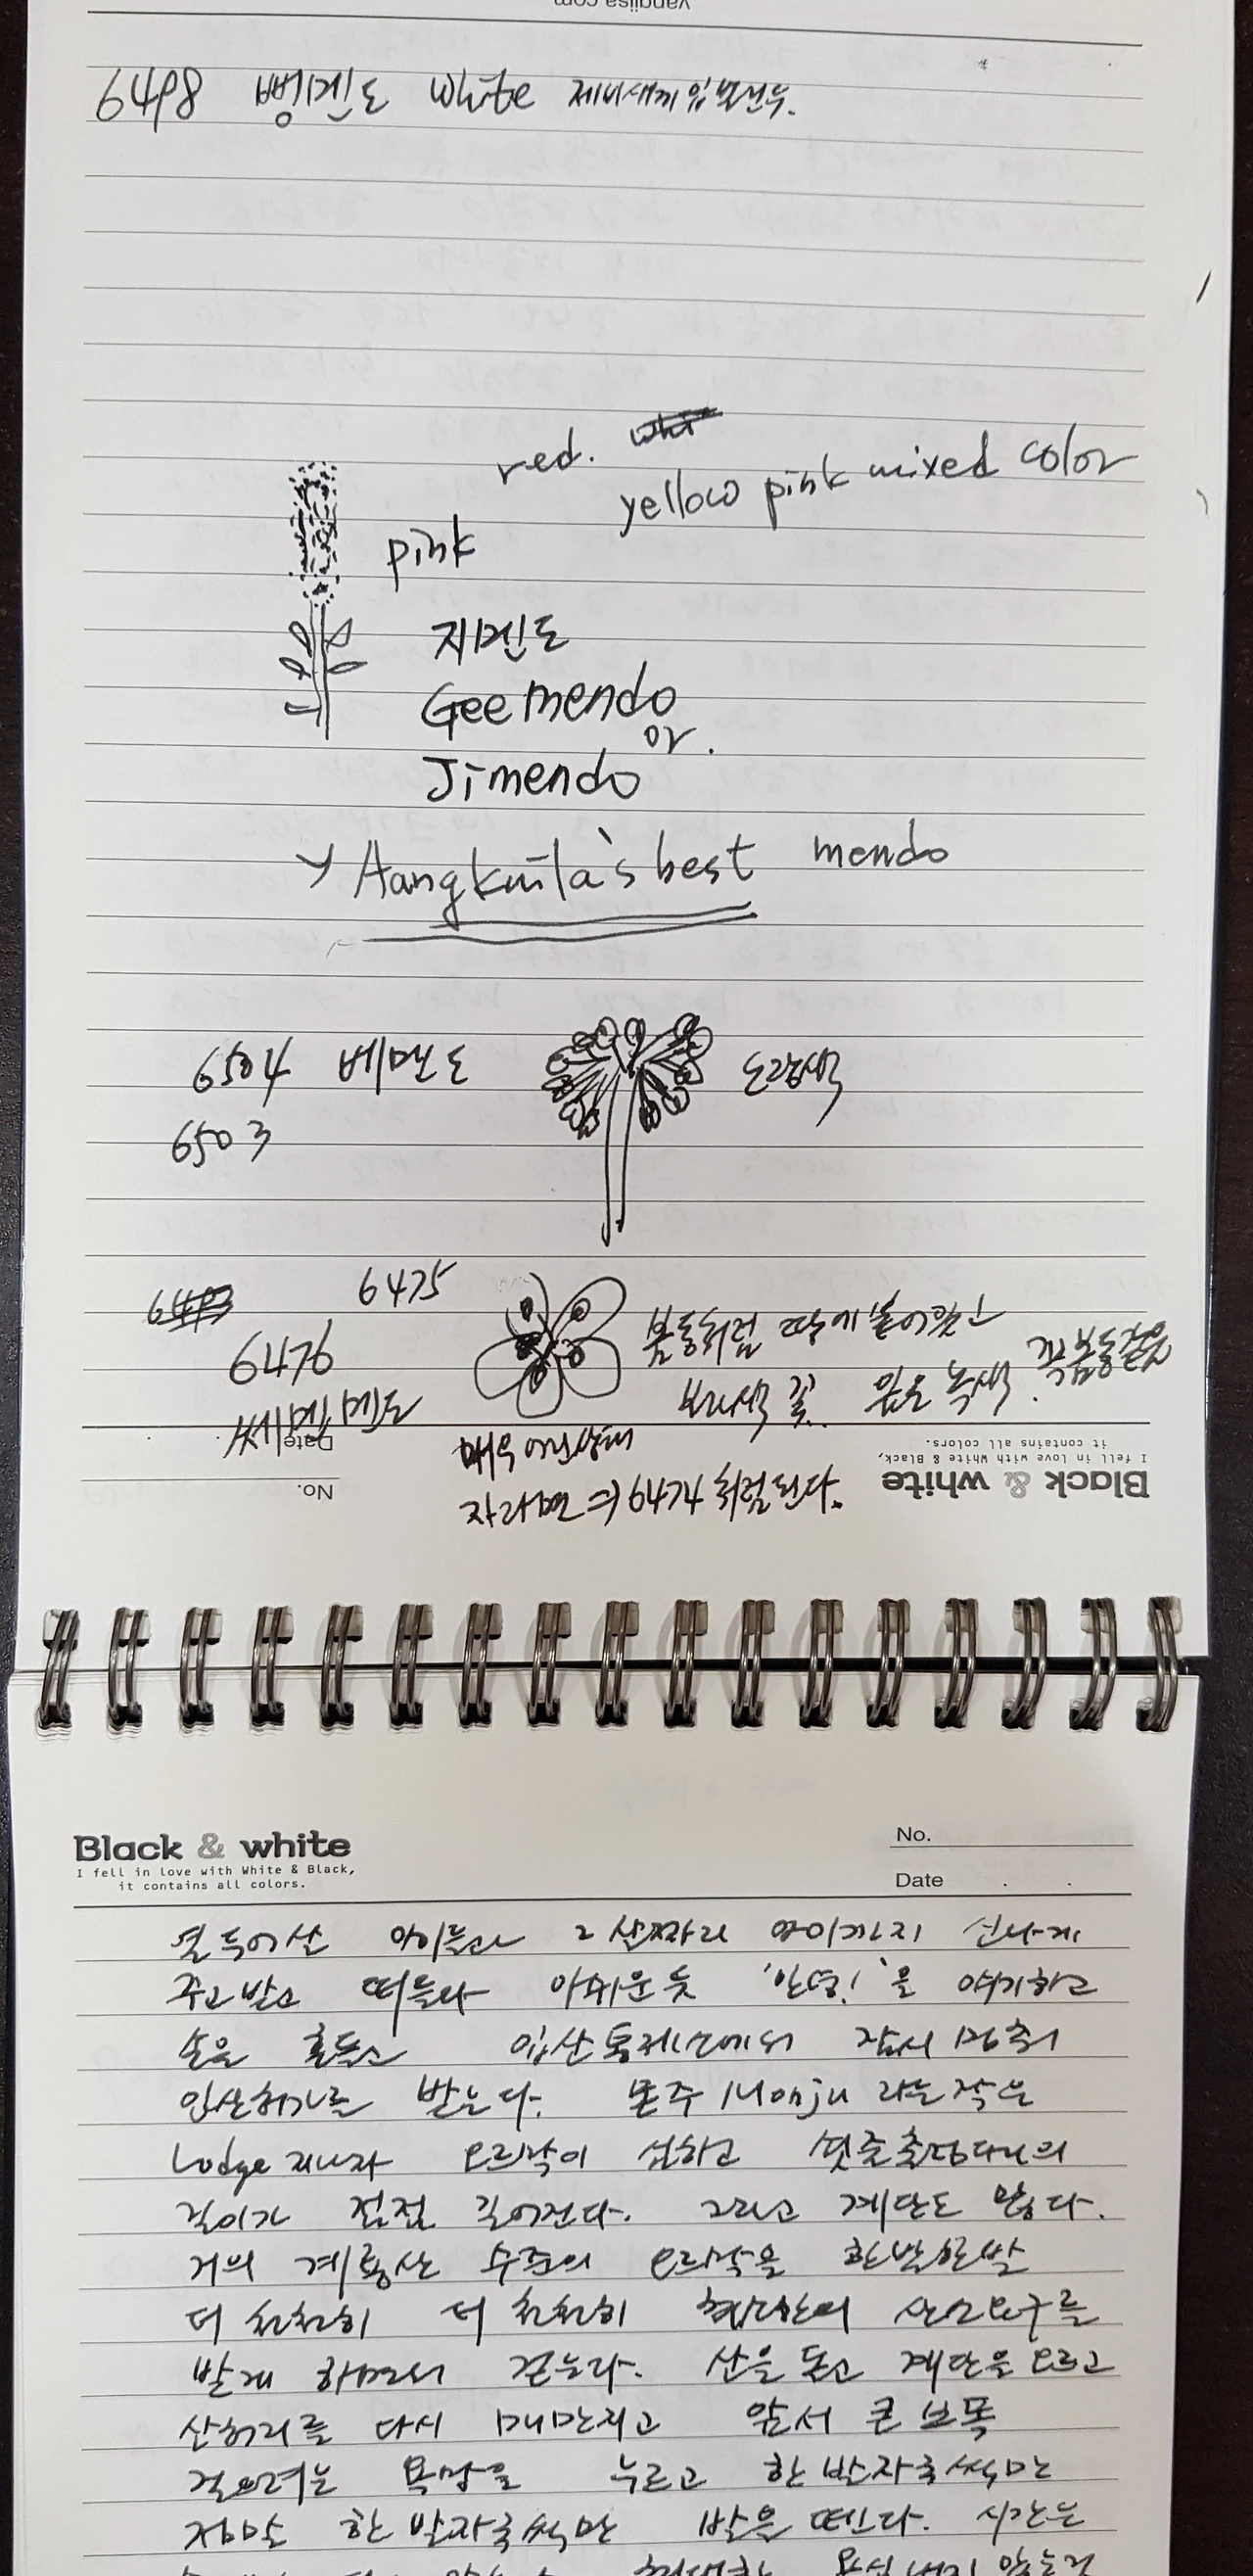 vangiisa com
6498 뼁멘도 white 제비새끼 입 보인두.
red.
yellow pink mixed color
pink
지멘도
Geemendo
or.
Jimendo
Aangkuila's best mendo
6504 베멘도 노랑색
6503
6475
6476
봄동처럼 땅에 붙어있고
보라색 꽃. 잎은 녹색. 꼭 봄동같음
쎄멘도
매우 어린상태
자라면 ⇒ 6474 처럼 된다.
No.
Date
Black & white
I fell in love with White & Black,
it contains all colors.
Black & white
I fell in love with White & Black,
it contains all colors.
No.
Date
열두어살 아이들과 2살짜리 아이까지 신나게
주고받고 떠들다 아쉬운듯 '안녕!'을 얘기하고
손을 흔들고 입산통제소에서 잠시 멈춰
입산허가를 받는다. 몬주 Monju 라는 작은
Lodge 지나자 오르막이 심하고 들숨날숨의
길이가 점점 길어진다. 그리고 계단도 많다.
거의 계룡산 수준의 오르막을 한발한발
더 천천히 더 천천히 산소요구를
하면서 걷는다. 산을 돌고 계단을 오르고
산허리를 다시 매만지고 앞서 큰 보폭
걸으려는 욕망을 누르고 한 발자국씩만
정말 한 발자국씩만 발을 뗀다. 시간은